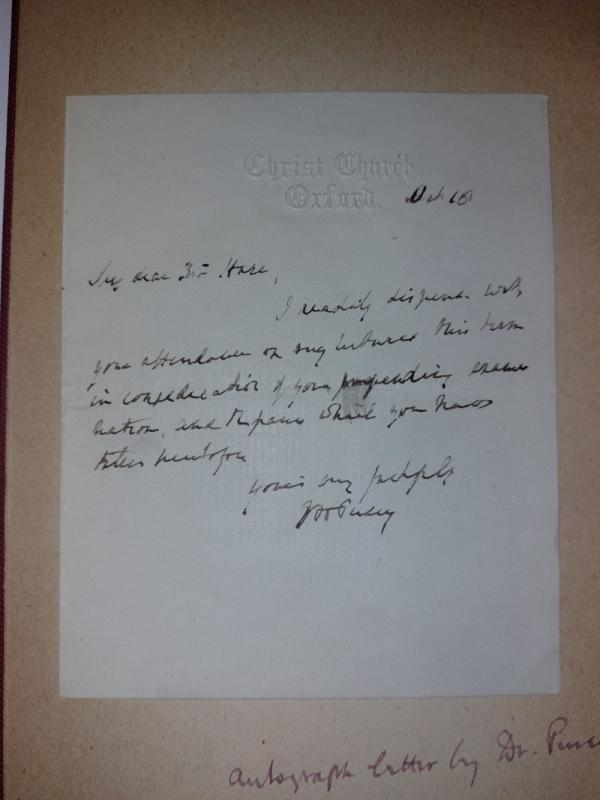 Christ Church.
Oxford.
My dear Mr Hare,
I readily dispense with
your attendance on my lectures this term
in consideration of your impending exami
nation, and the pains which you have
taken heretofore
yours very faithfully
EBPusey
Autograph letter by Dr. Puse